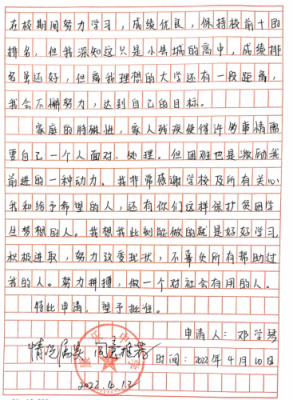 在校期间努力学习，成绩优良，保持校前十的
排名，但我深知这只是小县城的高中，成绩排
名虽还好，但离我理想的大学还有一段距离，
我会不懈努力，达到自己的目标。
家庭的特殊性，家人残疾使得许多事情需
要自己一个人面对、处理。但困难也是激励我
前进的一种动力。我非常感谢学校及所有关心
我和给予希望的人，还有你们这样保护贫困学
生梦想的人。我想我此刻能做的就是好好学习，
积极进取，努力改变现状，不辜负所有帮助过
我的人。努力拼搏，做一个对社会有用的人。
特此申请，望予批准。
申请人：邓学琴
情况属实 同意推荐
时间：2022年4月10日
2022.4.12